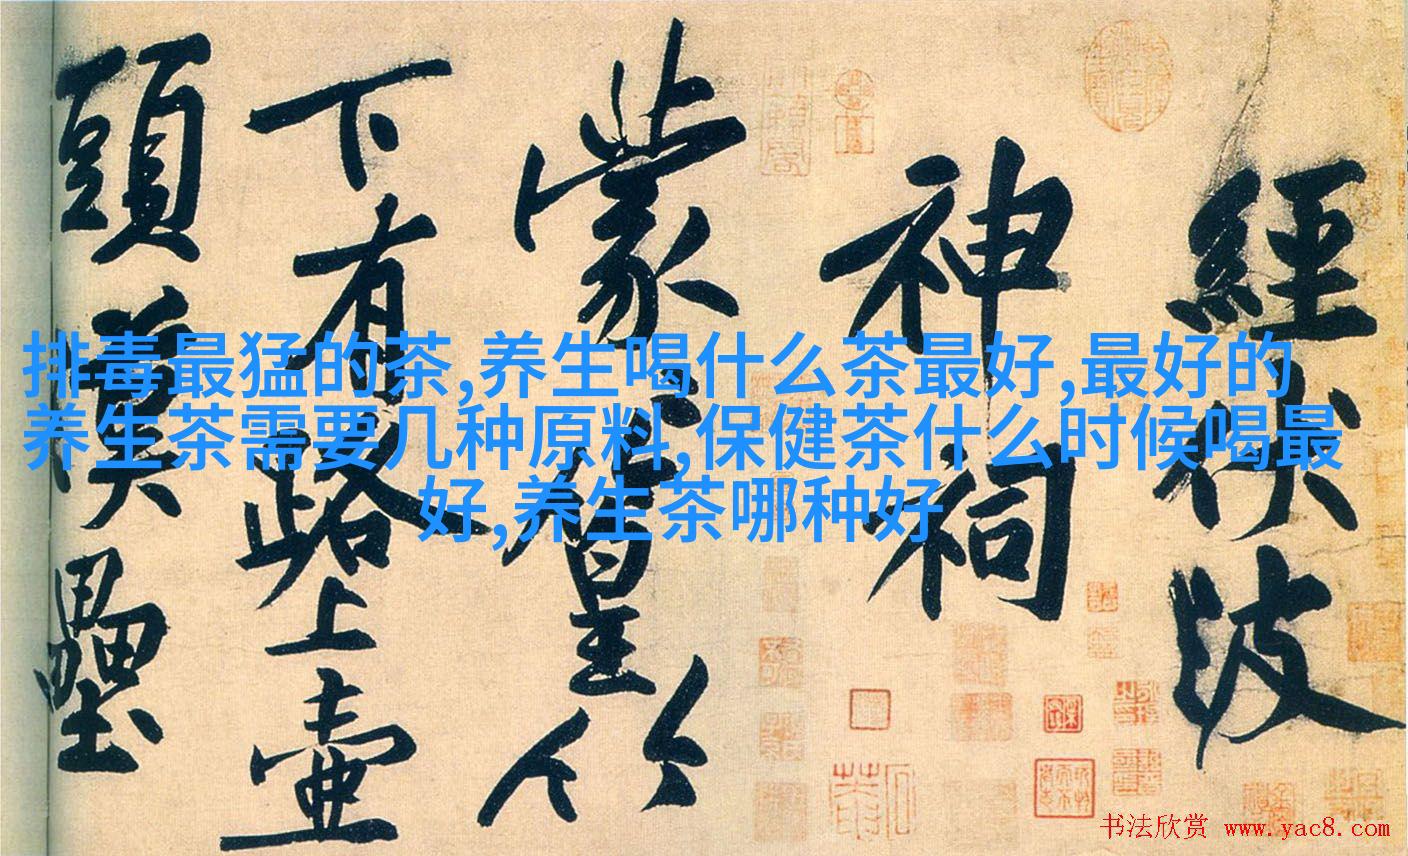 排毒最猛的茶,养生喝什么茶最好,最好的
养生茶需要几种原料,保健茶什么时候喝最
好,养生茶哪种好
經伏波
神祠
蒙蒙篁竹
下有路上壺
頭漢壘
书法欣赏 www.yac8.com